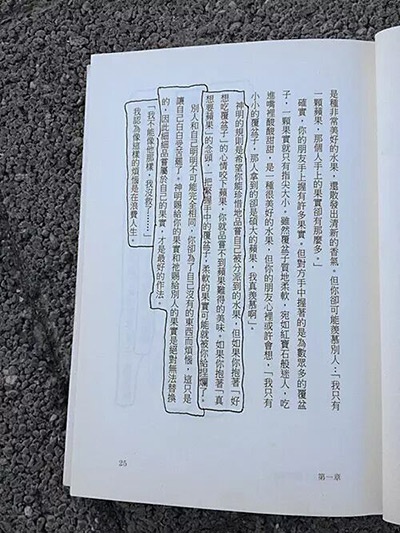 是種非常美好的水果，還散發出清新的香氣。但你卻可能羨慕別人：「我只有
一顆蘋果，那個人手上的果實卻有那麼多。」
確實，你的朋友手上握有許多果實，但對方手中握著的是為數眾多的覆盆
子，一顆果實就只有指尖大小，雖然覆盆子質地柔軟，宛如紅寶石般迷人，吃
進嘴裡酸酸甜甜，是一種很美好的水果，但你的朋友心裡或許會想，「我只有
小小的覆盆子，那人拿到的卻是碩大的蘋果，我真羨慕啊。」
神明的規則是希望你能珍惜地品嘗自己被分派到的水果，但如果你抱著「好
想吃覆盆子」的心情咬下蘋果，你就品嘗不到蘋果難得的美味。如果你抱著「真
想要蘋果」的念頭，一把緊握手中的覆盆子，柔軟的果實可能就被你給捏爛了。
別人和自己明明不可能完全相同，你卻為了自己沒有的東西而煩惱，這只是
讓自己白白受苦罷了。神明賜給你的果實和祂賜給別人的果實是絕對無法替換
的，因此細細品嘗屬於自己的果實，才是最好的作法。
「我不能像他那樣，我沒救了……」
我認為像這樣的煩惱是在浪費人生。
25
第一章